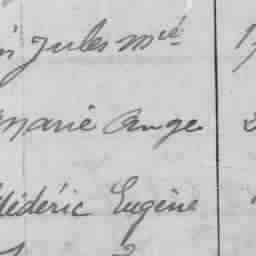 Jules Mié
Marie Ange
Médéric Eugène